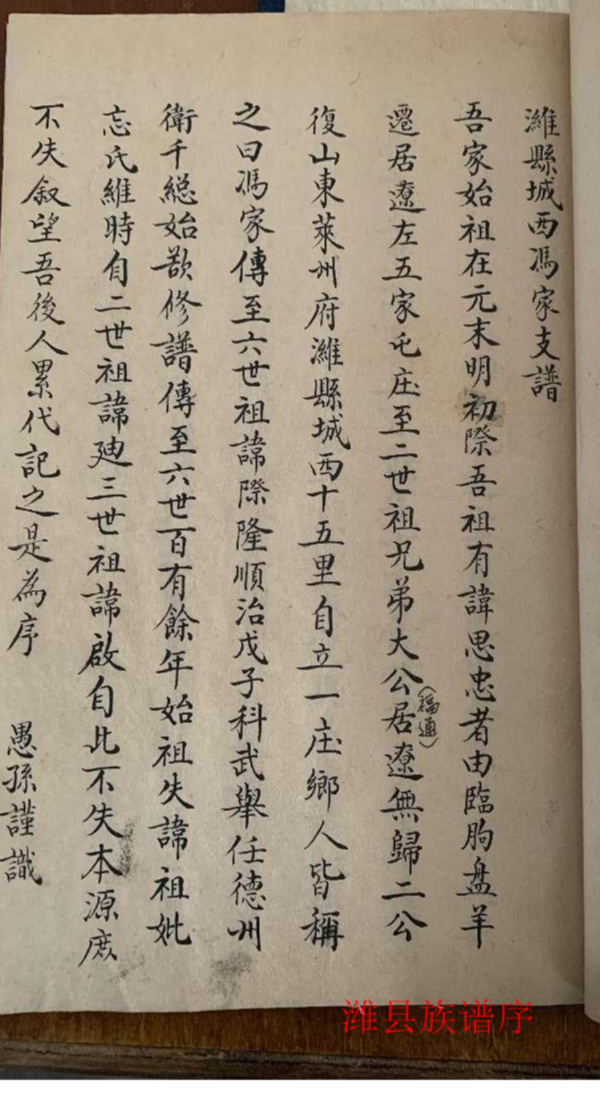 濰縣城西馮家支譜
吾家始祖在元末明初際吾祖有諱思忠者由臨朐盘羊
遷居遼左五家屯庄至二世祖兄弟大公居遼無歸二公
(福通)
復山東萊州府濰縣城西十五里自立一庄鄉人皆稱
之曰馮家傳至六世祖諱際隆順治戊子科武舉任德州
衛千総始歆修譜傳至六世百有餘年始祖失諱祖妣
忘氏維時自二世祖諱廸三世祖諱啟自此不失本源庶
不失叙望吾後人累代記之是為序
愚孫謹識
潍县族谱序